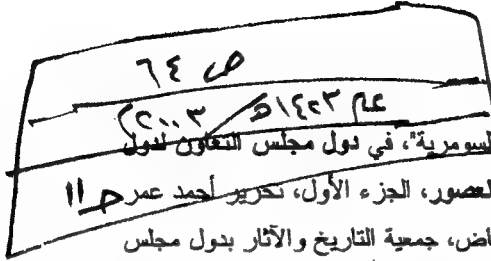 ص ٦٤
عام ١٤٢٣هـ / ٢٠٠٣م
لسومرية"، في دول مجلس التعاون لدول
لعصور، الجزء الأول، تحرير أحمد عمر
اض، جمعية التاريخ والآثار بدول مجلس